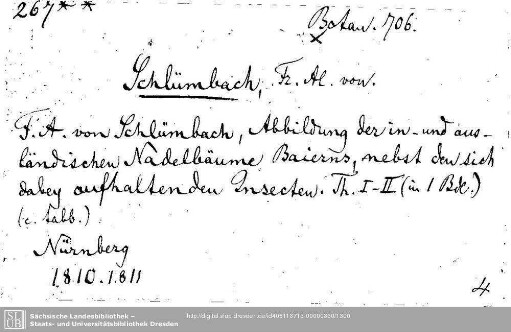 267**
Botan. 706.
Schlümbach, Fr. Al. von.
F. A. von Schlümbach, Abbildung der in- und aus-
ländischen Nadelbäume Baierns, nebst den sich
dabey aufhaltenden Insecten. Th. I-II (in 1 Bde.)
(c. tabb.)
Nürnberg
1810. 1811
4
Sächsische Landesbibliothek –
Staats- und Universitätsbibliothek Dresden